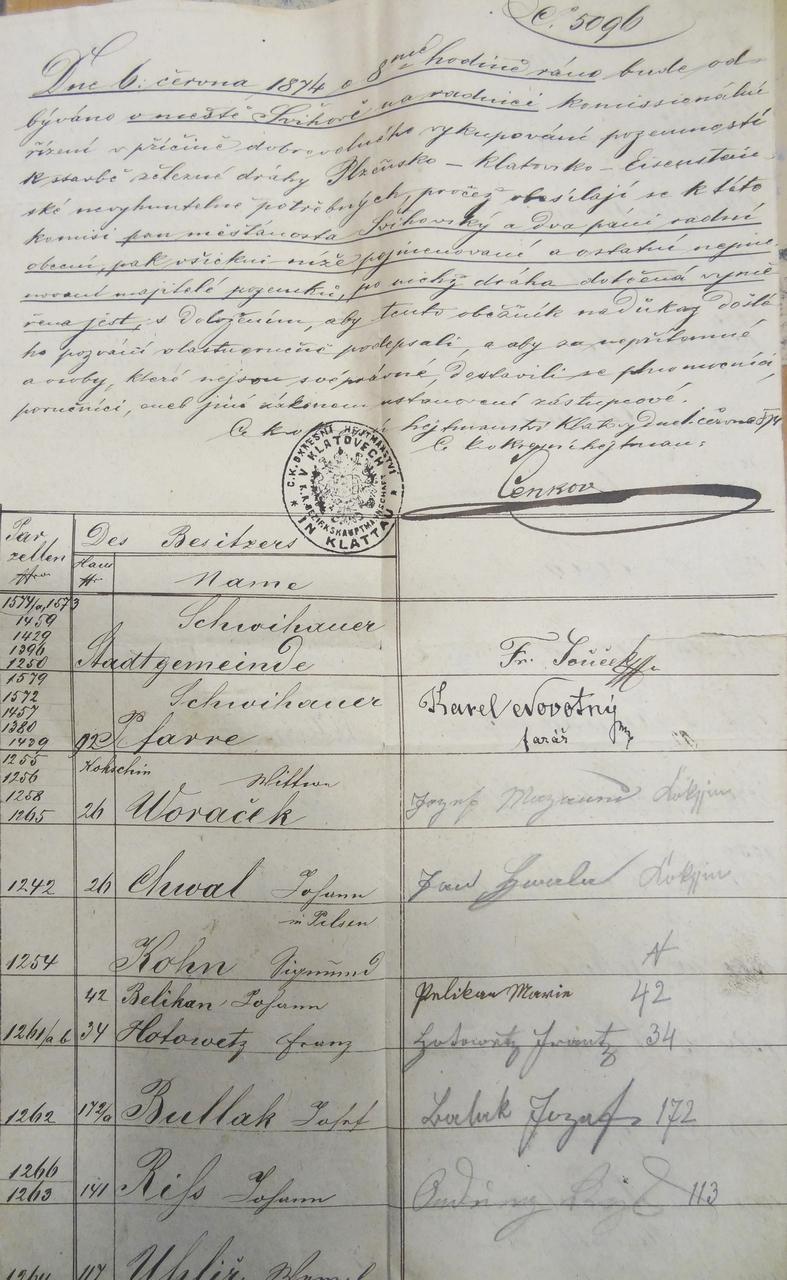 C. 5096
Dne 6. června 1874 o 8mé hodině ráno bude od-
býváno v městě Švihově na radnici komissionální
řízení v příčině dobrovolného vykupování pozemností
k stavbě železné dráhy Plzeňsko – Klatovsko – Eisenstein-
ské nevyhnutelně potřebných, pročež obsílají se k této
komisi pan městanosta Švihovský a dva páni radní
obecní, pak všickni níže pojmenované a ostatní nejme-
novaní majitelé pozemků, po nichž dráha dotčená vymě-
řena jest, s doložením, aby tento oběžník na důkaz došlé-
ho pozvání vlastnoručně podepsali, a aby za nepřítomné
a osoby, které nejsou svéprávné, dostavili se plnomocníci,
poručníci, aneb jiní zákonem ustanovení zástupcové.
C. k. hejtmanství Klatovy dne června 1874
C. k. okresní hejtman:
Cenkov
C.K. OKRESNÍ HEJTMANSTVÍ V KLATOVECH
K.K. BEZIRKSHAUPTMANNSCHAFT IN KLATTAU
Parzellen Nro
Des Besitzers
Haus N
Name
1574/a, 1573
1459
1429
1396
1250
Schwihauer
Stadtgemeinde
Fr. Souček
1579
1572
1457
1380
1439
92
Schwihauer
Pfarre
Karel Novotný
farář
1255
1256
1258
1265
Kokschin
26
Wittwe
Woraček
Jozef Kokšin
1242
26
Chwal Johann
in Pilsen
Jan Kokšin
1254
Kohn Sigmund
42 Belihan Johann
Pelikan Marie 42
1261/a b 34 Hotowetz Franz
Hotowetz Frantz 34
1262 172/a Bullak Josef
Baluk Jozef 172
1266
1263
141 Riss Johann
113
1264 117 Uhliř Wenzel